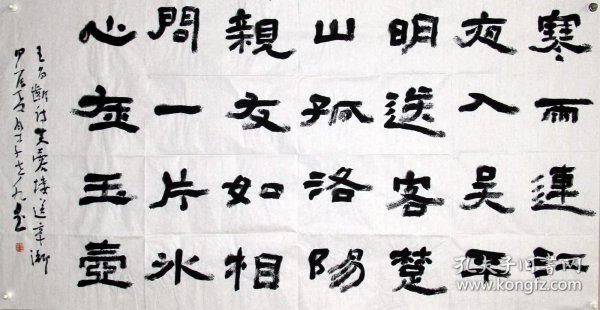 寒雨連江
夜入吴平
明送客楚
山孤洛陽
親友如相
問一片冰
心在玉壺
王昌齡詩芙蓉樓送辛漸
孔夫子旧书网
www.kongfz.com